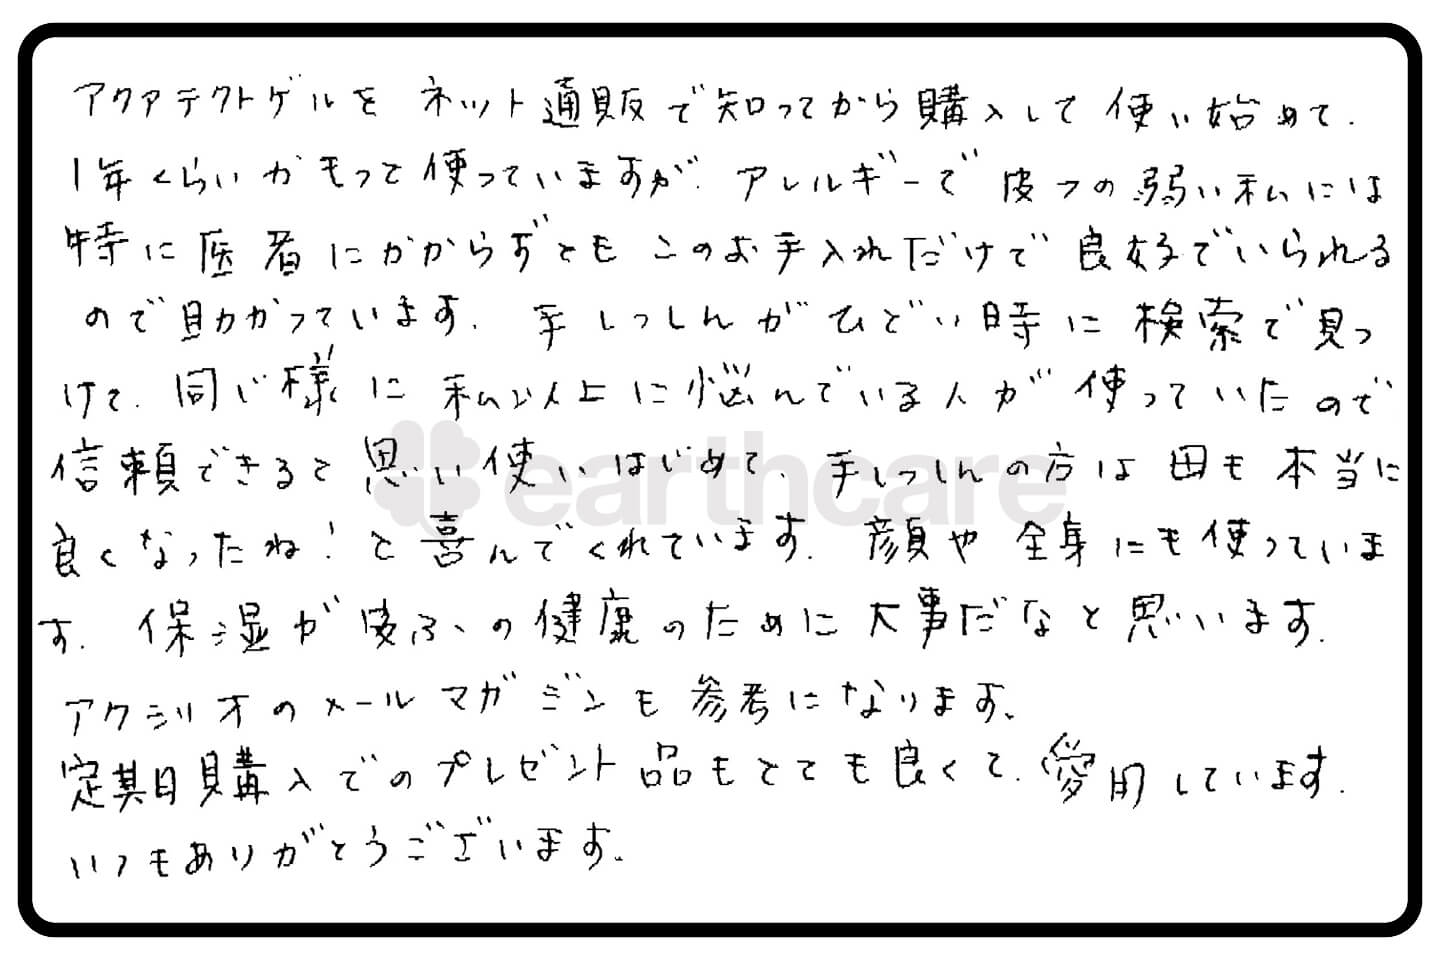 アクアテクトゲルを ネット通販で知ってから購入して使い始めて、
1年くらいかもっと使っていますが、アレルギーで皮フの弱い私には
特に医者にかからずとも このお手入れだけで良好でいられる
ので助かっています。手しっしんがひどい時に検索で見つ
けて、同じ様に私以上に悩んでいる人が使っていたので
信頼できると思い使いはじめて、手しっしんの方は今も本当に
良くなったね!と喜んでくれています。顔や全身にも使っていま
す。保湿が皮ふの健康のために大事だなと思います。
アクシリオのメールマガジンも参考になります。
定期購入でのプレゼント品もとても良くて、愛用しています。
いつもありがとうございます。
earthcare